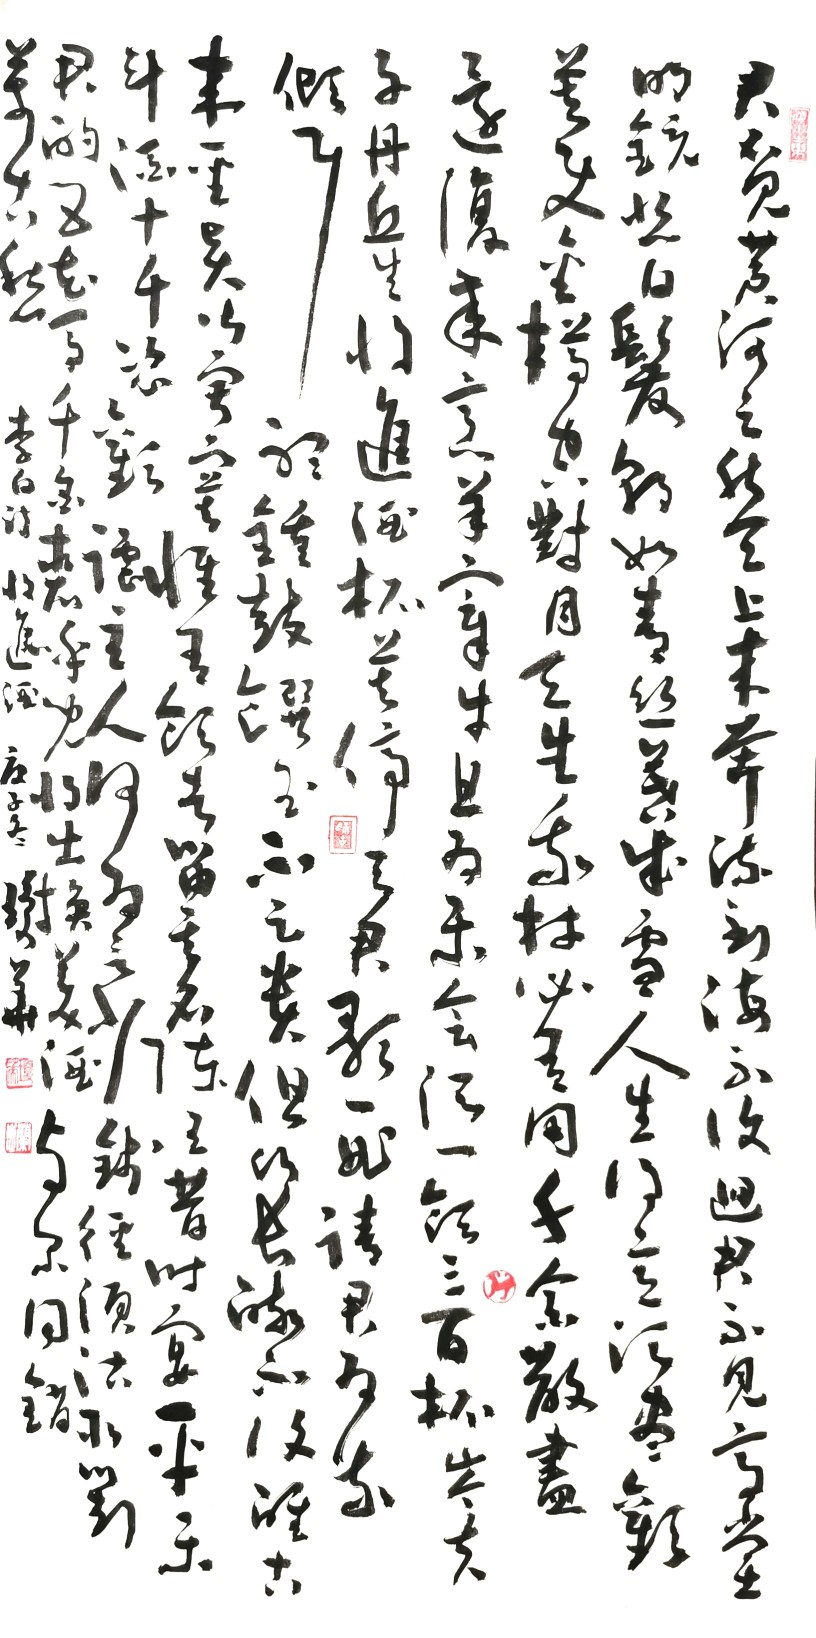 君不見黃河之水天上來奔流到海不復迴君不見高堂
明鏡悲白髮朝如青絲暮成雪人生得意須盡歡
莫使金樽空對月天生我材必有用千金散盡
還復來烹羊宰牛且為樂會須一飲三百杯岑夫
子丹丘生將進酒杯莫停與君歌一曲請君為我
傾耳聽鐘鼓饌玉不足貴但願長醉不復醒古
來聖賢皆寂寞惟有飲者留其名陳王昔時宴平樂
斗酒十千恣歡謔主人何為言少錢徑須沽取對
君酌五花馬千金裘呼兒將出換美酒與爾同銷
萬古愁 李白詩 將進酒 庚子冬